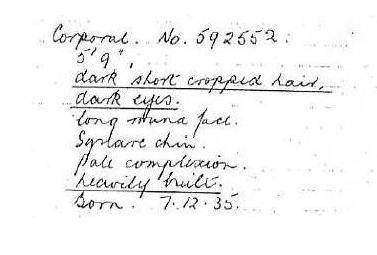 Corporal. No. 592552.
5' 9",
dark short cropped hair,
dark eyes.
long round face.
Square chin.
Pale complexion.
heavily built.
Born. 7.12.35.